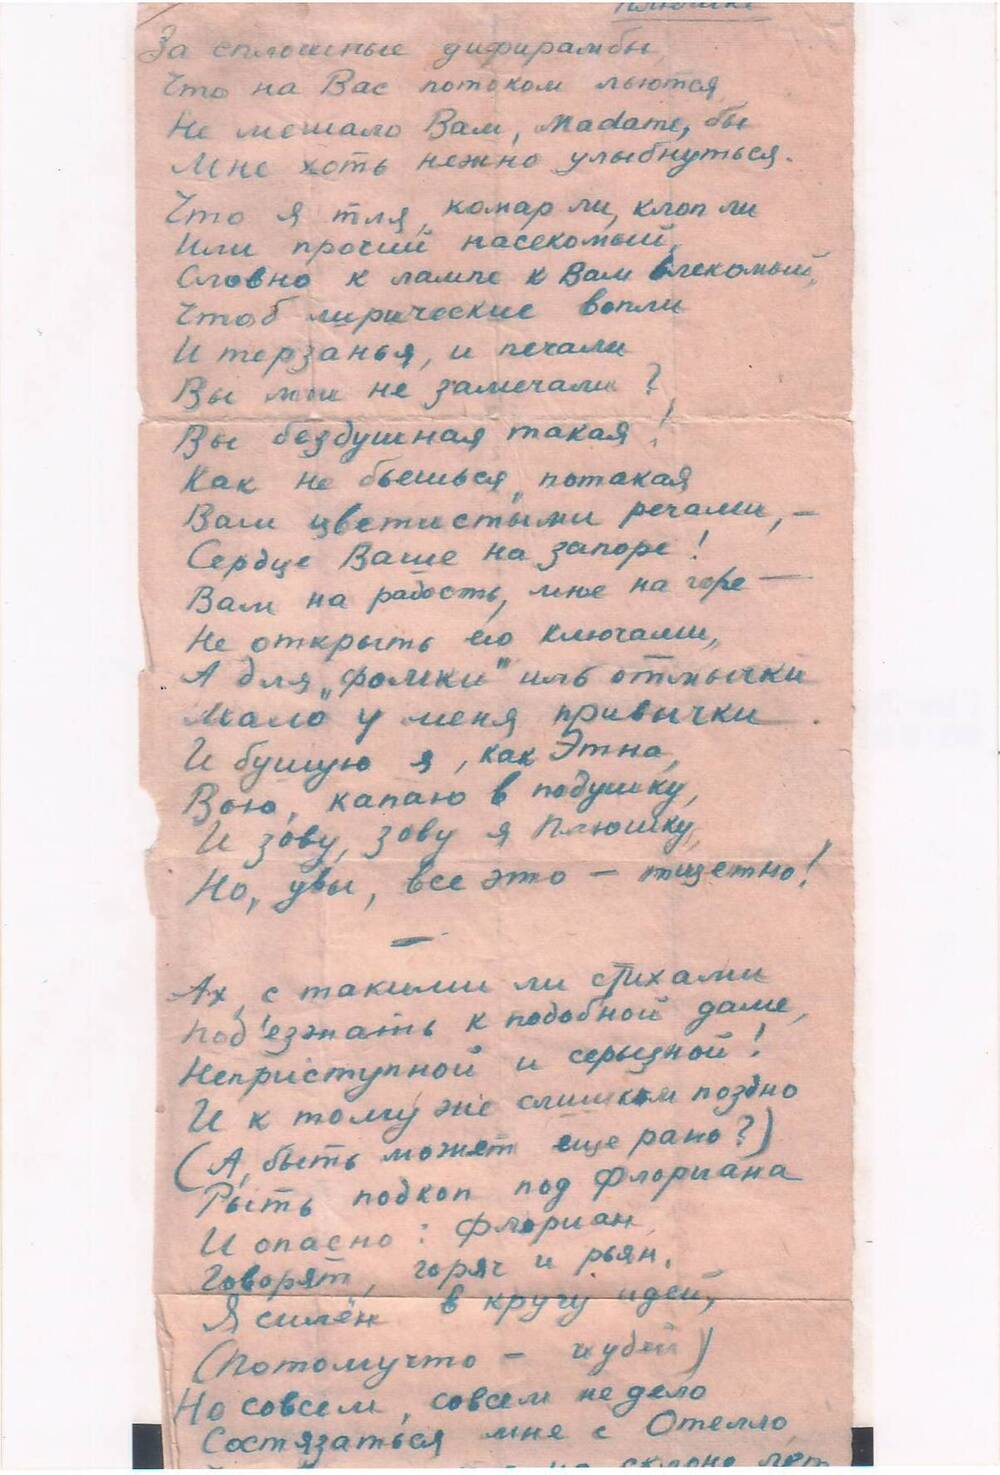 Плюшке
За сплошные дифирамбы,
Что на Вас потоком льются,
Не мешало Вам, Madame, бы
Мне хоть нежно улыбнуться.
Что я тля, комар ли, клоп ли
Или прочий насекомый,
Словно к лампе к Вам влекомый,
Чтоб лирические вопли
И терзанья, и печали
Вы мои не замечали?
Вы бездушная такая!
Как не бьешься, потакая
Вам цветистыми речами, —
Сердце Ваше на запоре!
Вам на радость, мне на горе —
Не открыть его ключами,
А для „фомки" иль отмычки
Мало у меня привычки.
И бушую я, как Этна,
Вою, капаю в подушку,
И зову, зову я Плюшку,
Но, увы, все это — тщетно!
—
Ах, с такими ли стихами
Под'езжать к подобной даме,
Неприступной и серьезной!
И к тому же слишком поздно
(А, быть может еще рано?)
Рыть подкоп под Флориана
И опасно: Флориан,
Говорят, горяч и рьян.
Я силён в кругу идей,
(Потому что — иудей)
Но совсем, совсем не дело
Состязаться мне с Отелло,
на склоне лет